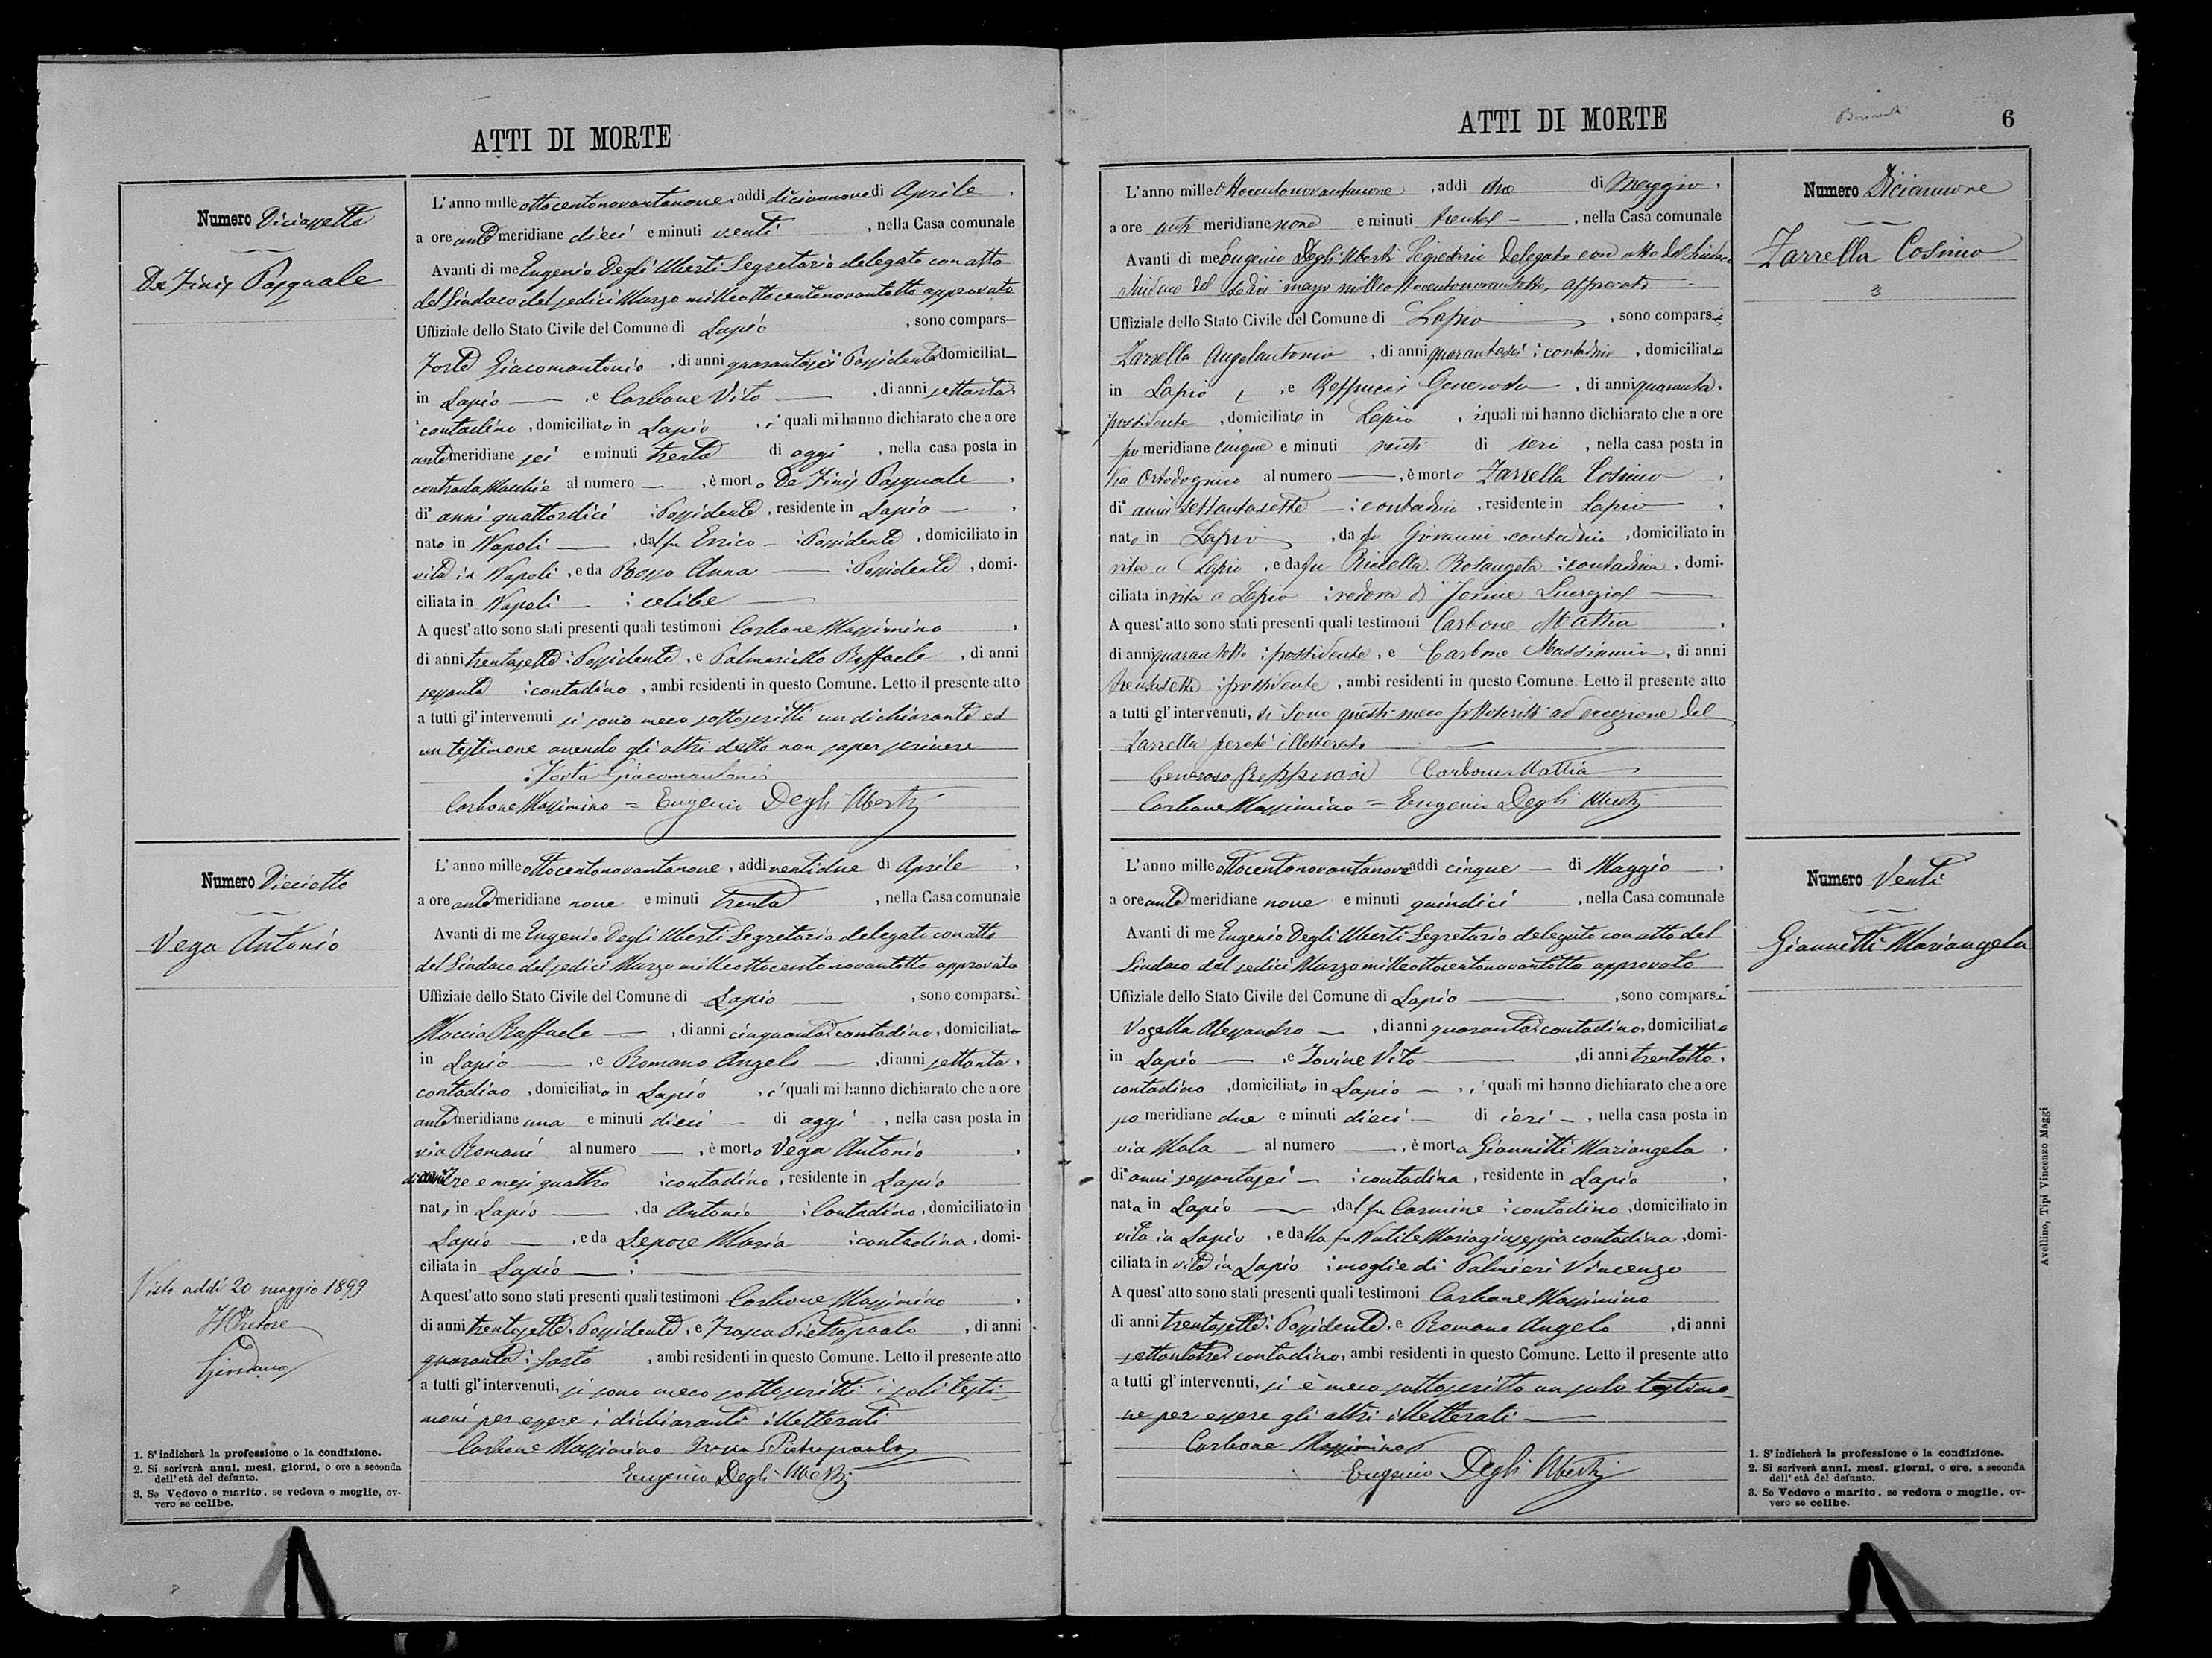 ATTI DI MORTE
Numero Diciassette
De Finis Pasquale
L'anno mille ottocentonovantanove, addì diciannove di Aprile,
a ore ante meridiane dieci e minuti venti, nella Casa comunale
Avanti di me Eugenio Degli Uberti Segretario delegato con atto
del Sindaco del sedici Marzo milleottocentonovantotto approvato
Uffiziale dello Stato Civile del Comune di Lapio, sono compars—
Forte Giacomantonio, di anni quarantasei Possidente domiciliat—
in Lapio — , e Carbone Vito — , di anni settanta
contadino, domiciliato in Lapio, i quali mi hanno dichiarato che a ore
ante meridiane sei e minuti trenta di oggi, nella casa posta in
contrada Macchie al numero — , è morto De Finis Pasquale,
di anni quattordici Possidente, residente in Lapio — ,
nato in Napoli — , dal fu Errico — Possidente, domiciliato in
vita in Napoli, e da Bosso Anna — Possidente, domi-
ciliata in Napoli — celibe —
A quest'atto sono stati presenti quali testimoni Carbone Massimino,
di anni trentasette Possidente, e Palmariello Raffaele, di anni
sessanta contadino, ambi residenti in questo Comune. Letto il presente atto
a tutti gl'intervenuti si sono meco sottoscritti un dichiarante ed
un testimone avendo gli altri detto non saper scrivere
Forte Giacomantonio
Carbone Massimino = Eugenio Degli Uberti
Numero Dieciotto
Vega Antonio
Visto addì 20 maggio 1899
Il Pretore
Giordano
L'anno mille ottocentonovantanove, addì ventidue di Aprile,
a ore ante meridiane nove e minuti trenta, nella Casa comunale
Avanti di me Eugenio Degli Uberti Segretario delegato con atto
del Sindaco del sedici Marzo milleottocentonovantotto approvato
Uffiziale dello Stato Civile del Comune di Lapio — , sono comparsi
Moccia Raffaele — , di anni cinquanta contadino, domiciliato
in Lapio — , e Romano Angelo — , di anni settanta,
contadino, domiciliato in Lapio, i quali mi hanno dichiarato che a ore
ante meridiane una e minuti dieci — di oggi, nella casa posta in
via Romani al numero — , è morto Vega Antonio,
tre e mesi quattro contadino, residente in Lapio
nato in Lapio — , da Antonio Contadino, domiciliato in
Lapio — , e da Lepore Maria contadina, domi-
ciliata in Lapio —
A quest'atto sono stati presenti quali testimoni Carbone Massimino,
di anni trentasette, Possidente, e Frasca Pietropaolo, di anni
quaranta Sarto, ambi residenti in questo Comune. Letto il presente atto
a tutti gl'intervenuti, si sono meco sottoscritti i soli testi-
moni per essere i dichiaranti illetterati
Carbone Massimino Frasca Pietropaolo
Eugenio Degli Uberti
1. S'indicherà la professione o la condizione.
2. Si scriverà anni, mesi, giorni, o ore a seconda
dell'età del defunto.
3. Se Vedovo o marito, se vedova o moglie, ov-
vero se celibe.
ATTI DI MORTE
6
Numero Diciannove
Zarrella Cosimo
L'anno mille Ottocentonovantanove, addì due di Maggio,
a ore anti meridiane nove e minuti trenta — , nella Casa comunale
Avanti di me Eugenio Degli Uberti Segretario Delegato con atto del Sindaco
del sedici marzo milleottocentonovantotto, approvato
Uffiziale dello Stato Civile del Comune di Lapio — , sono comparsi
Zarrella Angelantonio, di anni quarantasei contadino, domiciliato
in Lapio, e Reppucci Generoso, di anni quaranta,
possidente, domiciliato in Lapio, i quali mi hanno dichiarato che a ore
po meridiane cinque e minuti venti di ieri, nella casa posta in
Via al numero — , è morto Zarrella Cosimo,
di anni settantasette — contadino, residente in Lapio — ,
nato in Lapio, da fu Giovanni contadino, domiciliato in
vita a Lapio, e da fu Riccella Rosangela contadina, domi-
ciliata in vita a Lapio vedovo di Jovine Lucrezia —
A quest'atto sono stati presenti quali testimoni Carbone Mattia,
di anni quarantotto possidente, e Carbone Massimino, di anni
trentasette possidente, ambi residenti in questo Comune. Letto il presente atto
a tutti gl'intervenuti, si sono questi meco sottoscritti ad eccezione del
Zarrella perché illetterato —
Generoso Reppucci Carbone Mattia
Carbone Massimino = Eugenio Degli Uberti
Numero Venti
Giannitti Mariangela
L'anno mille ottocentonovantanove addì cinque — di Maggio,
a ore ante meridiane nove e minuti quindici, nella Casa comunale
Avanti di me Eugenio Degli Uberti Segretario delegato con atto del
Sindaco del sedici Marzo milleottocentonovantotto approvato
Uffiziale dello Stato Civile del Comune di Lapio — , sono comparsi
Vozella Alessandro — , di anni quaranta contadino, domiciliato
in Lapio — , e Iovine Vito — , di anni trentotto,
contadino, domiciliato in Lapio — , i quali mi hanno dichiarato che a ore
po meridiane due e minuti dieci — di ieri — , nella casa posta in
via Mala — al numero — , è morta Giannitti Mariangela,
di anni sessantasei — contadina, residente in Lapio,
nata in Lapio — , dal fu Carmine contadino, domiciliato in
vita in Lapio, e dalla fu Nutile Mariagiuseppa contadina, domi-
ciliata in vita in Lapio moglie di Palmieri Vincenzo
A quest'atto sono stati presenti quali testimoni Carbone Massimino
di anni trentasette Possidente, e Romano Angelo, di anni
settantatre contadino, ambi residenti in questo Comune. Letto il presente atto
a tutti gl'intervenuti, si è meco sottoscritto un solo testimo-
ne per essere gli altri illetterati —
Carbone Massimino
Eugenio Degli Uberti
1. S'indicherà la professione o la condizione.
2. Si scriverà anni, mesi, giorni, o ore, a seconda
dell'età del defunto.
3. Se Vedovo o marito, se vedova o moglie, ov-
vero se celibe.
Avellino, Tipi Vincenzo Maggi